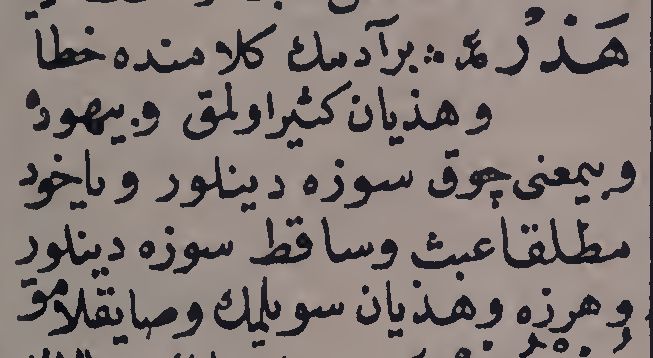 هَذْرُ بر آدمك كلامنده خطا
و هذيان كثير اولمق و بيهوده
و بيمعنى چوق سوزه دينلور و ياخود
مطلقا عبث و ساقط سوزه دينلور
و هرزه و هذيان سويلمك و صايقلامق